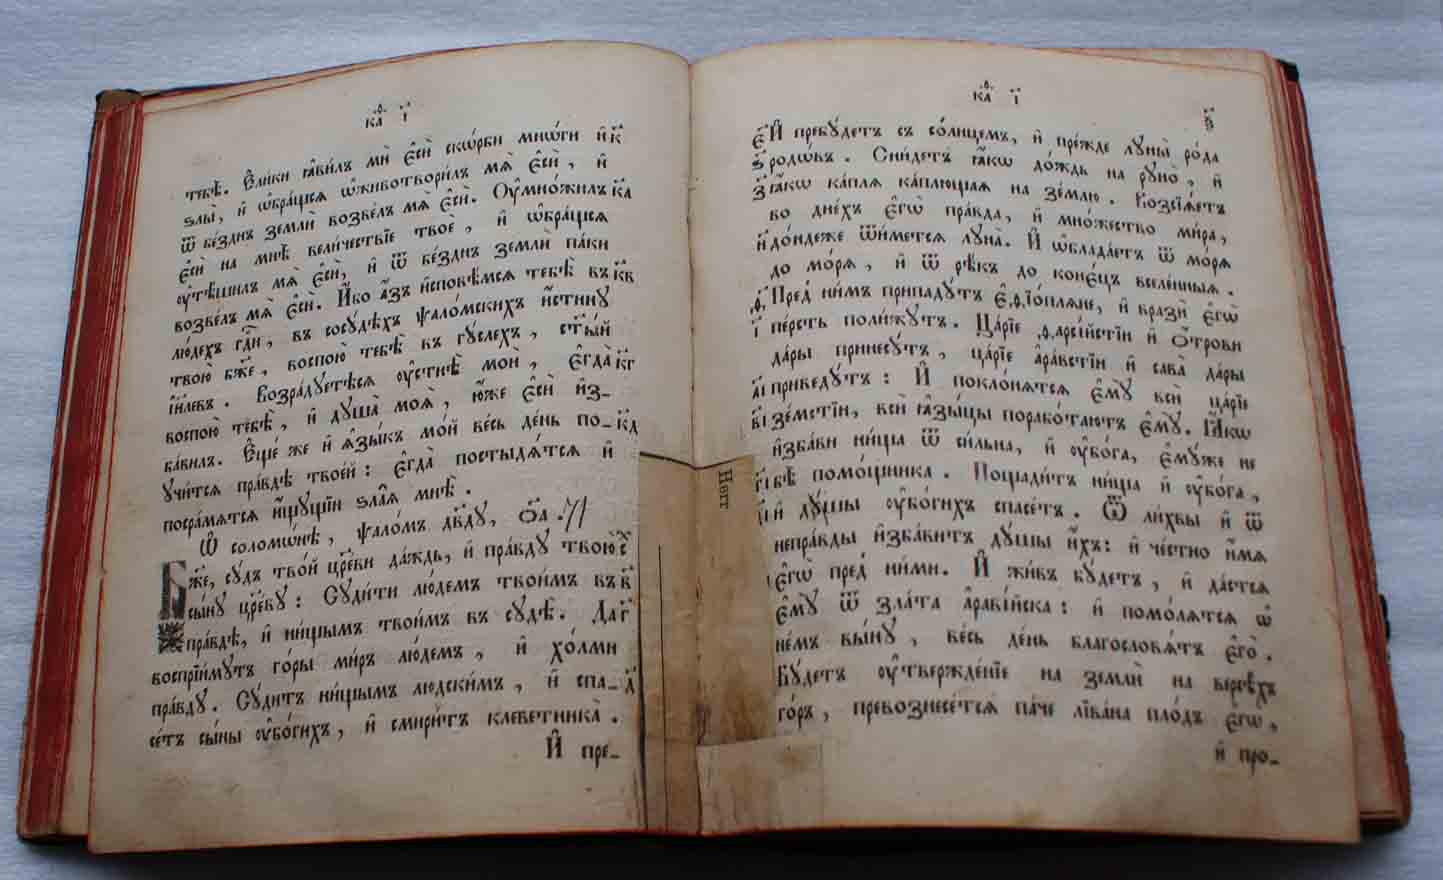 каѳ і҃
тебѣ. Е҆ли́ки ꙗ҆ви́лъ мѝ є҆сѝ скѡ́рби мнѡ́ги и҆ к҃
ѕлы̀, и҆ ѡ҆бра́щсѧ ѡ҆животвори́лъ мѧ̀ є҆сѝ, и҆
ѿ бе́зднъ землѝ возве́лъ мѧ̀ є҆сѝ. Оу҆мно́жилъ к҃а
є҆сѝ на мнѣ̀ вели́чествїе твоѐ, и҆ ѡ҆бра́щсѧ
оу҆тѣ́шилъ мѧ̀ є҆сѝ, и҆ ѿ бе́зднъ землѝ па́ки
возве́лъ мѧ̀ є҆сѝ. И҆́бо а҆́зъ и҆сповѣ́мсѧ тебѣ̀ въ к҃в
лю́дехъ гдⷭ҇и, въ сосу́дѣхъ ѱало́мскихъ и҆́стину
твою̀ бж҃е, воспою̀ тебѣ̀ въ гу́слехъ, ст҃ы́й
і҆и҃левъ. Возра́дуетѣсѧ оу҆стнѣ̀ мои, є҆гда̀ к҃г
воспою̀ тебѣ̀, и҆ душа̀ моѧ̀, ю҆́же є҆сѝ и҆з-
ба́вилъ. Є҆ще́ же и҆ ѧ҆зы́къ мо́й ве́сь де́нь по- к҃д
учи́тсѧ пра́вдѣ твое́й: є҆гда̀ постыдѧ́тсѧ и҆
посра́мѧтсѧ и҆́щущїи ѕла̑ѧ мнѣ̀.
Ѡ҆ соломѡ́нѣ, ѱало́мъ дв҃ду, о҃а. 71
Бж҃е, су́дъ тво́й цр҃е́ви да́ждь, и҆ пра́вду твою̀
сы́ну цр҃е́ву: Суди́ти лю́демъ твои́мъ въ в҃
пра́вдѣ, и҆ ни́щымъ твои́мъ въ судѣ̀. Да г҃
воспрїи́мутъ го́ры ми́ръ лю́демъ, и҆ хо́лми
пра́вду. Су́дитъ ни́щымъ людски́мъ, и҆ спа- д҃
се́тъ сы́ны оу҆бо́гихъ, и҆ смири́тъ клеветника̀.
И҆ пре-
каѳ і҃
є҃ И҆ пребу́детъ съ со́лнцемъ, и҆ пре́жде луны̀ ро́да
ѕ҃ родѡ́въ. Сни́детъ ꙗ҆́кѡ до́ждь на руно̀, и҆
з҃ ꙗ҆́кѡ ка́плѧ ка́плющаѧ на зе́млю. Возсїѧ́етъ
во дне́хъ є҆гѡ̀ пра́вда, и҆ мно́жество ми́ра,
и҃ до́ндеже ѿи́метсѧ луна̀. И҆ ѡ҆блада́етъ ѿ мо́рѧ
до мо́рѧ, и҆ ѿ рѣ́къ до коне́цъ вселе́нныѧ.
ѳ҃ Пред̾ ни́мъ припаду́тъ є҆ѳїо́плѧне, и҆ вразѝ є҆гѡ̀
і҃ пе́рсть поли́жутъ. Ца́рїе ѳарсі́йстїи и҆ о҆́строви
да́ры принесу́тъ, ца́рїе а҆ра́встїи и҆ сава̀ да́ры
а҃і приведу́тъ: И҆ покло́нѧтсѧ є҆мꙋ̀ всѝ ца́рїе
в҃і зе́мстїи, всѝ ꙗ҆зы́цы порабо́таютъ є҆му̀. Ꙗ҆́кѡ
и҆зба́ви ни́ща ѿ си́льна, и҆ оу҆бо́га, є҆му́же не
г҃і бѣ̀ помо́щника. Пощади́тъ ни́ща и҆ оу҆бо́га,
д҃і и҆ ду́шы оу҆бо́гихъ спасе́тъ. Ѿ ли́хвы и҆ ѿ
непра́вды и҆зба́витъ ду́шы и҆́хъ: и҆ че́стно и҆́мѧ
є҆гѡ̀ пред̾ ни́ми. И҆ жи́въ бу́детъ, и҆ да́стсѧ
є҆му̀ ѿ зла́та а҆раві́йска: и҆ помо́лѧтсѧ ѡ҆
не́мъ вы́ну, ве́сь де́нь благословѧ́тъ є҆го̀.
Бу́детъ оу҆твержде́нїе на землѝ на версѣ́хъ
го́ръ, превознесе́тсѧ па́че лїва́на пло́дъ є҆гѡ̀,
и҆ про-